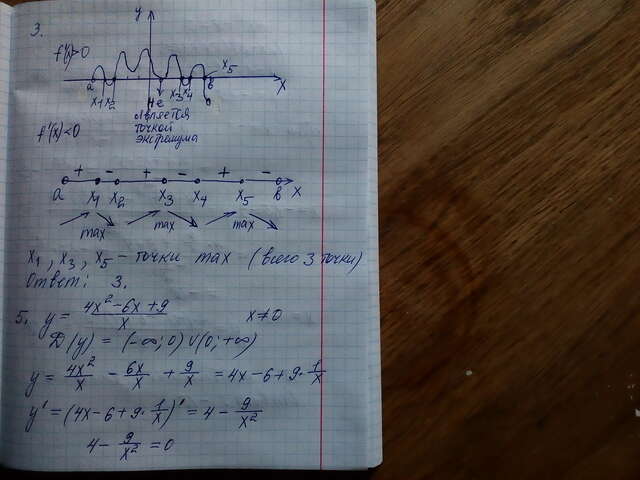 3.
y
f'(x)>0
a x₁ x₂ x₃ x₄ b x₅ x
Не
является
точкой
экстремума
f'(x)<0
+ - + - + -
a x₁ x₂ x₃ x₄ x₅ b x
max max max
x₁, x₃, x₅ - точки max (всего 3 точки)
Ответ: 3.
5. y = (4x²-6x+9)/x x≠0
D(y) = (-∞; 0)∪(0; +∞)
y = 4x²/x - 6x/x + 9/x = 4x-6+9·1/x
y' = (4x-6+9·1/x)' = 4 - 9/x²
4 - 9/x² = 0